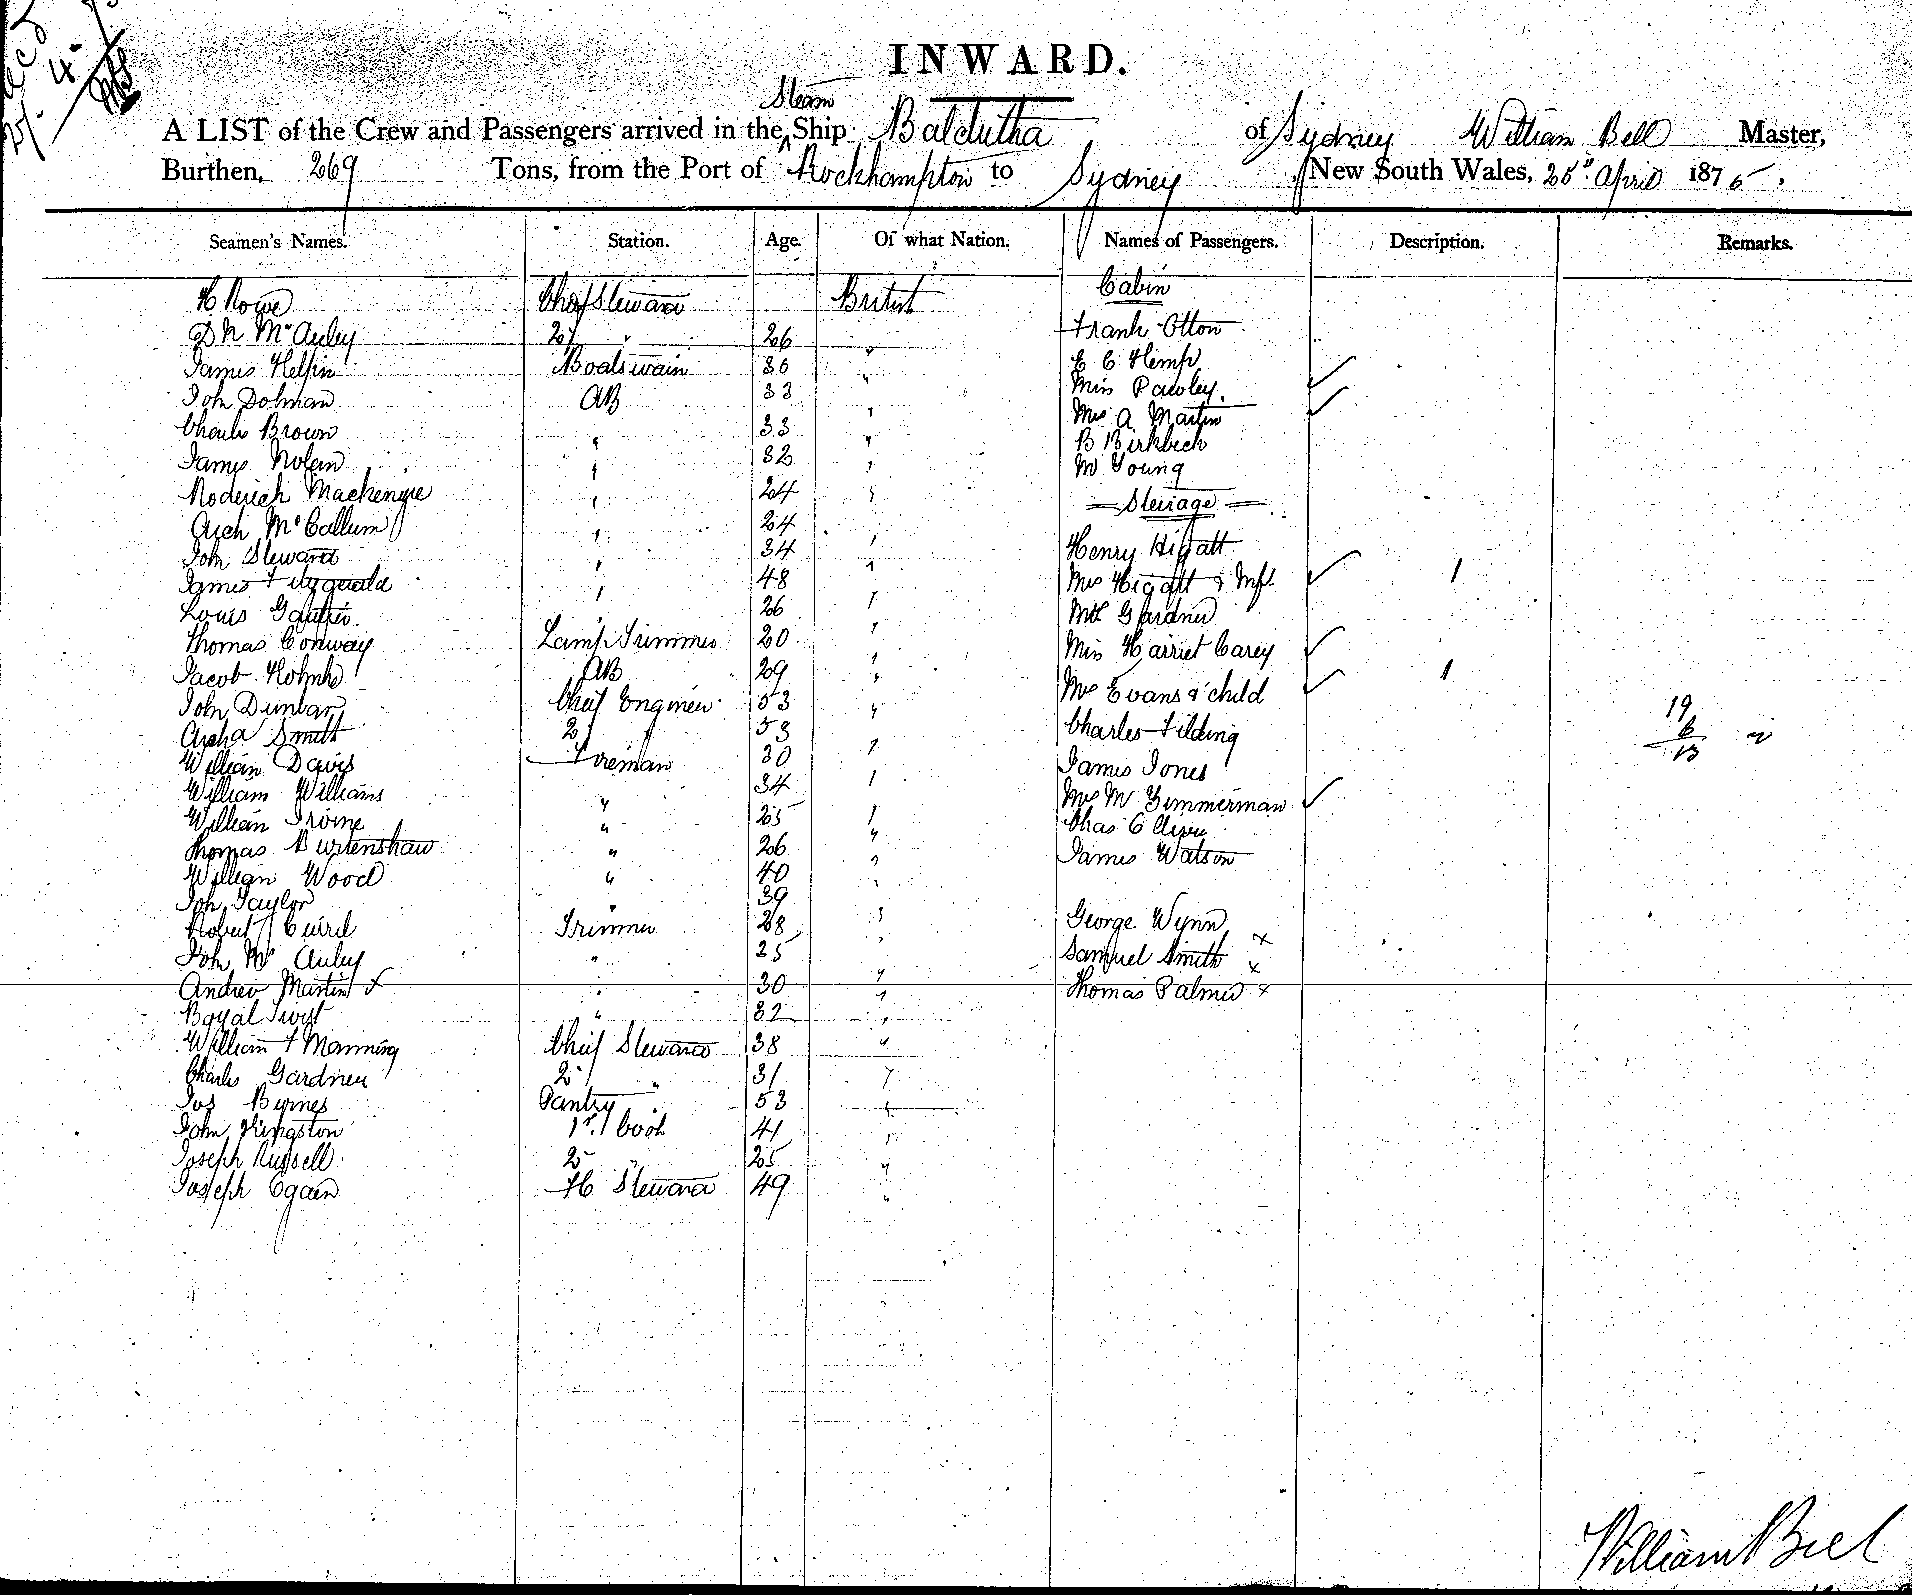 INWARD.
Steam
A LIST of the Crew and Passengers arrived in the Ship Balclutha of Sydney William Bell Master,
Burthen, 269 Tons, from the Port of Rockhampton to Sydney New South Wales, 25 April 1875.
Seamen's Names. Station. Age. Of what Nation. Names of Passengers. Description. Remarks.
H Rowe Chief Steward British Cabin
D N McAuley 2 " 26 " Frank Otton
James Boatswain 36 " E C Hemp
John Dolman AB 33 " Miss Pawley. ✓
Charles Brown " 33 " Mrs A Martin ✓
James Nolan " 32 " B Birkbeck
Roderick Mackenzie " 24 " M Young
Arch McCallum " 24 " Steerage
John Steward " 34 " Henry Higatt
James Fitzgerald " 48 " Mrs Higatt & Inft ✓ 1
Louis " 26 " Gardner
Thomas Conway Lamp Trimmer 20 " Miss Harriet Carey ✓
Jacob AB 29 " Mrs Evans & child ✓ 1
John Dunbar Chief Engineer 53 "
Archd Smith 2 53 Charles Filding
William Davis Fireman 30 " James Jones
William Williams " 34 " Mrs M Zimmerman ✓
William Irvine " 25 " Chas
Thomas Burtenshaw " 26 " James Watson
William Wood " 40 "
John Taylor " 39 "
Robert Trimmer 28 " George Wynn
John Mc Auley " 25 " Samuel Smith x
Andrew Martin " 30 " Thomas Palmer x
Royal Twist " 32 "
William F Manning Chief Steward 38 "
Charles Gardner 2 " 31 "
Jos Byrnes Pantry " 53 "
John Kingston 1st Cook 41 "
Joseph Russell 2 " 25 "
Joseph Egan Steward 49 "
19
6
13
William Bell